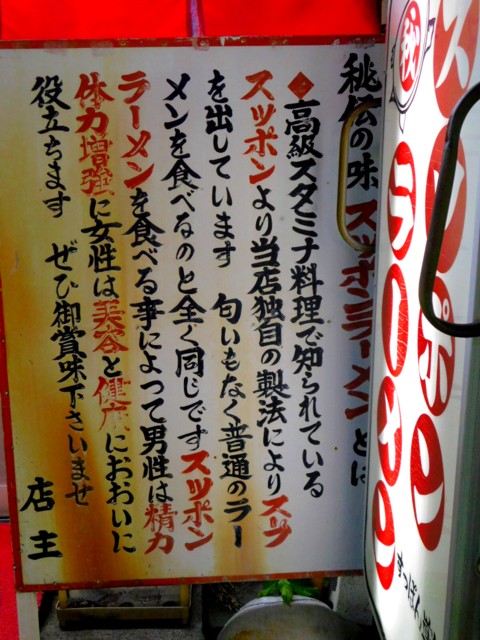 秘伝の味 スッポンラーメンとは
◆高級スタミナ料理で知られている
スッポンより当店独自の製法によりスープ
を出しています 匂いもなく普通のラー
メンを食べるのと全く同じですスッポン
ラーメンを食べる事によって男性は精力
体力増強に女性は美容と健康におおいに
役立ちます ぜひ御賞味下さいませ
店主
㊙
スッポン
ラーメン
すっぽん